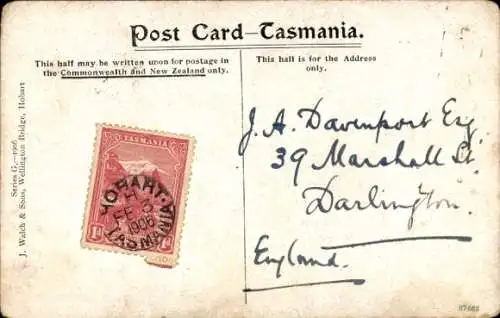 Post Card—Tasmania.
This half may be written upon for postage in
the Commonwealth and New Zealand only.
This half is for the Address
only.
Series G,—1906.
J. Walch & Sons, Wellington Bridge, Hobart
TASMANIA
HOBART
FE
1906
TASMANIA
1d
J. A. Davenport Esq
39 Marshall St.
Darlington.
England.